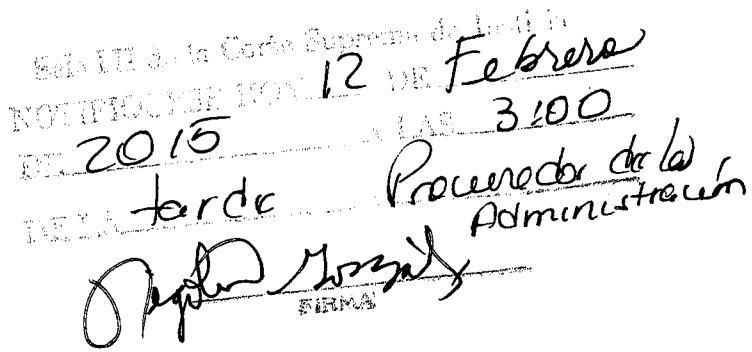 Sala III de la Corte Suprema de Justicia
NOTIFIQUESE HOY 12 DE Febrero
DE 2015 A LAS 3:00
DE LA tarde Procurador de la
Administración
FIRMA